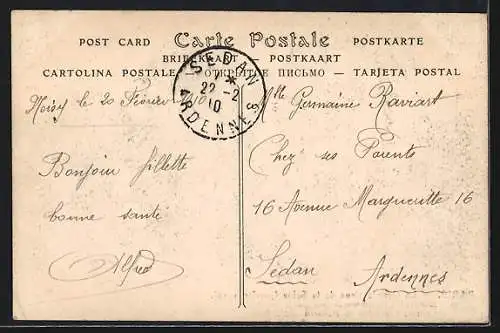 POST CARD Carte Postale POSTKARTE
BRIEFKAART POSTKAART
CARTOLINA POSTALE — ОТКРЫТОЕ ПИСЬМО — TARJETA POSTAL
SEDAN
*
22 - 2
10
ARDENNES
le 20 Février 10
Bonjour fillette
bonne santé
Alfred
Mlle Germaine Raviart
Chez ses Parents
16 Avenue Margueritte 16
Sédan
Ardennes